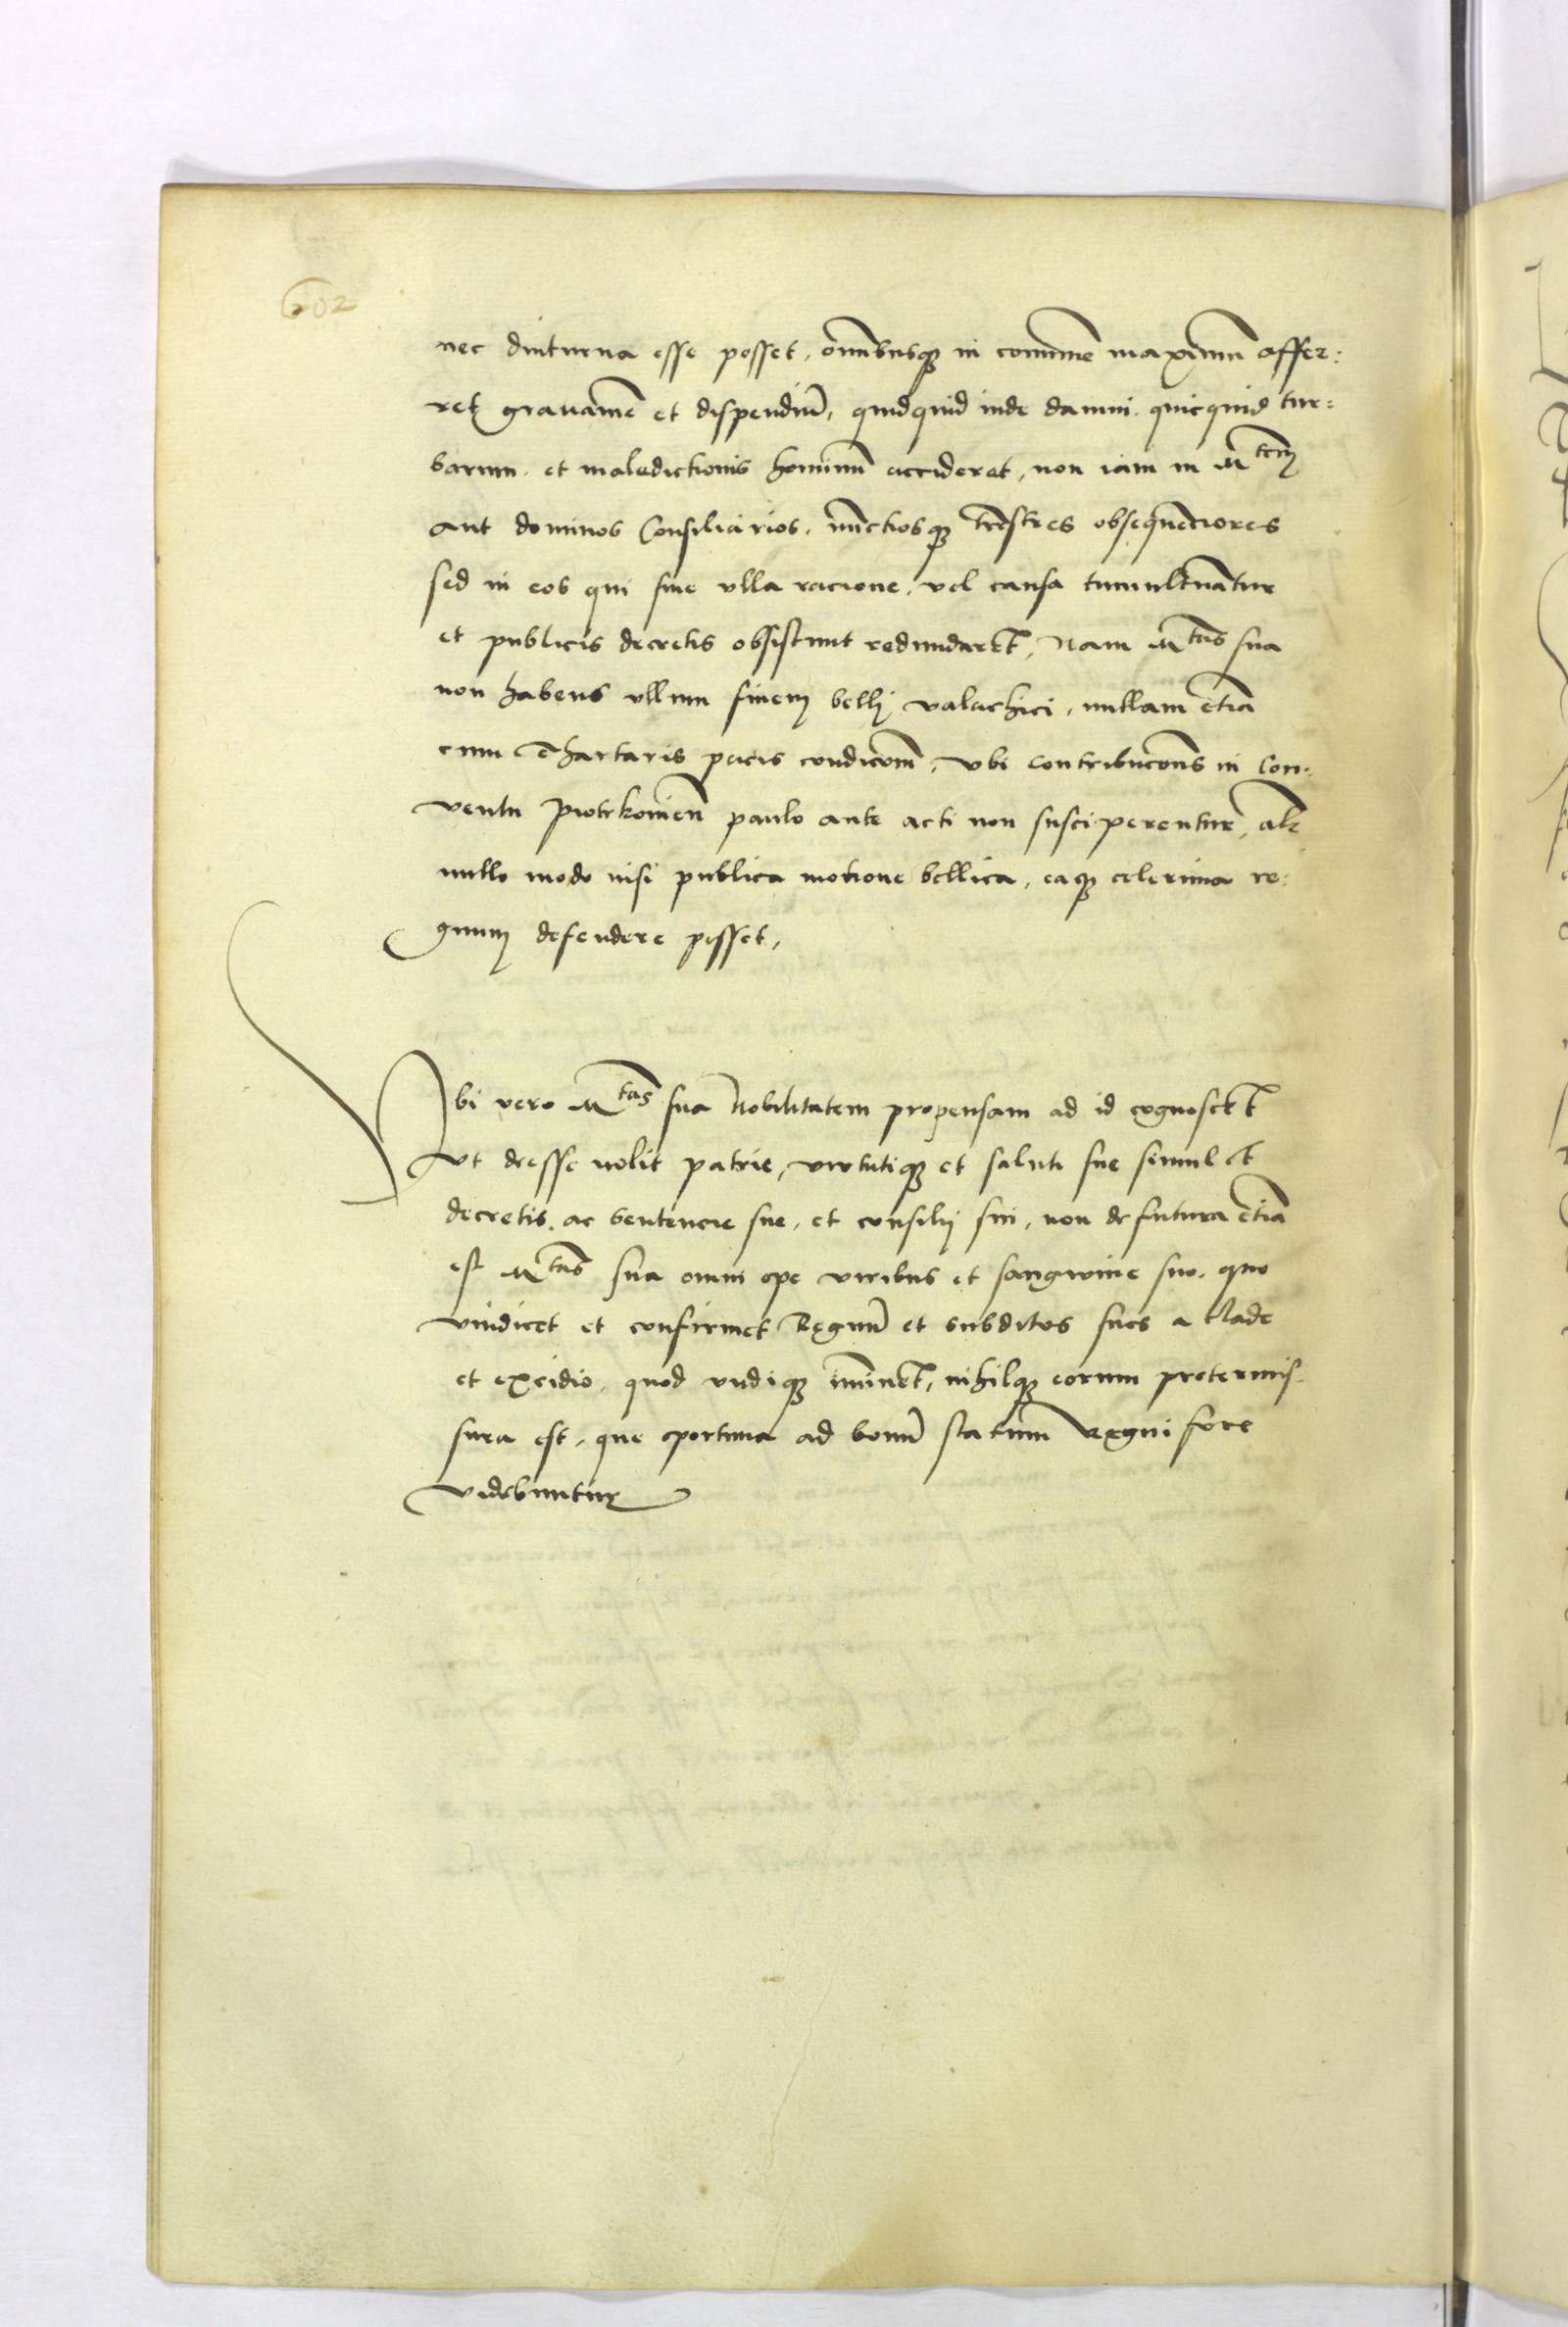 602
nec diuturna esse posset, omnibusq3 in comune maximu affer:
ret gravamē et dispendiū, quidquid inde damni. quicquid tur=
barum. et maledictionis hominū accideret, non iam in Mtem
aut dominos Consiliarios. nūctiosq3 trēstres obsequēciores
sed in eos qui sine ulla racione, vel causa tumultuātur
et publicis decretis obsistunt redundaret, Nam Mtas sua
non habens ullum finem belli valachici, nullam etiā
cum thartaris pacis condicōm, ubi contribucōns in Con:
ventu Piotrkovien̄ paulo ante acti non susciperentur, alr
nullo modo nisi publica motione bellica, eaq3 celerima re:
gnum defendere posset,
Ubi vero Mtas sua Nobilitatem propensam ad id cognoscet
Ut deesse nolit patrie, virtutiq3 et saluti sue simul et
decretis. ac sentencie sue, et consilij sui, non defutura etiā
est Mtas sua omni ope viribus et sangwine suo. quo
vindicet et confirmet Regnū et subditos suos a clade
et excidio, quod undiq3 iminet, nihilq3 eorum pretermis:
sura est, que oportuna ad bonū statum regni fore
videbuntur